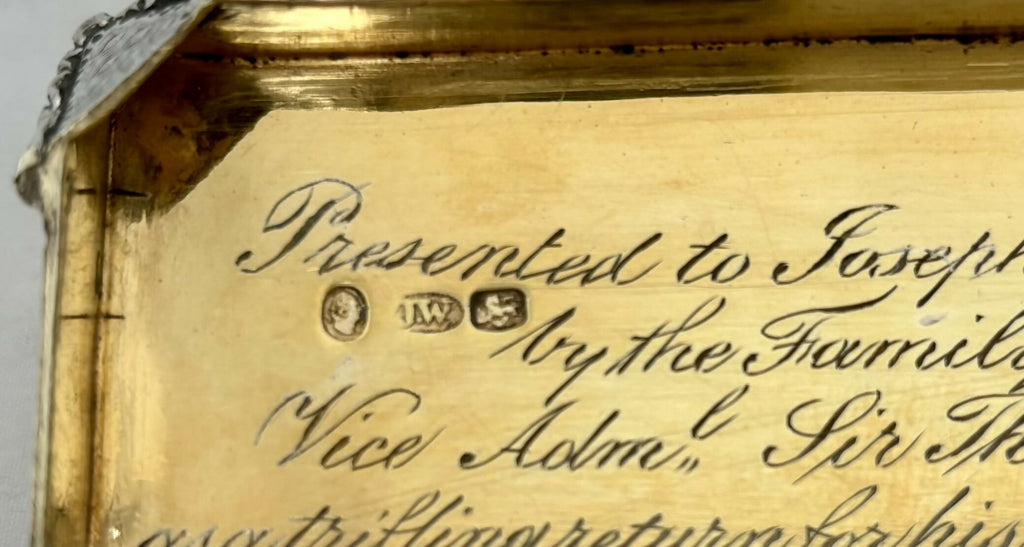 Presented to Joseph
JW
by the Family
Vice Adm.l Sir Th
as a trifling return for his